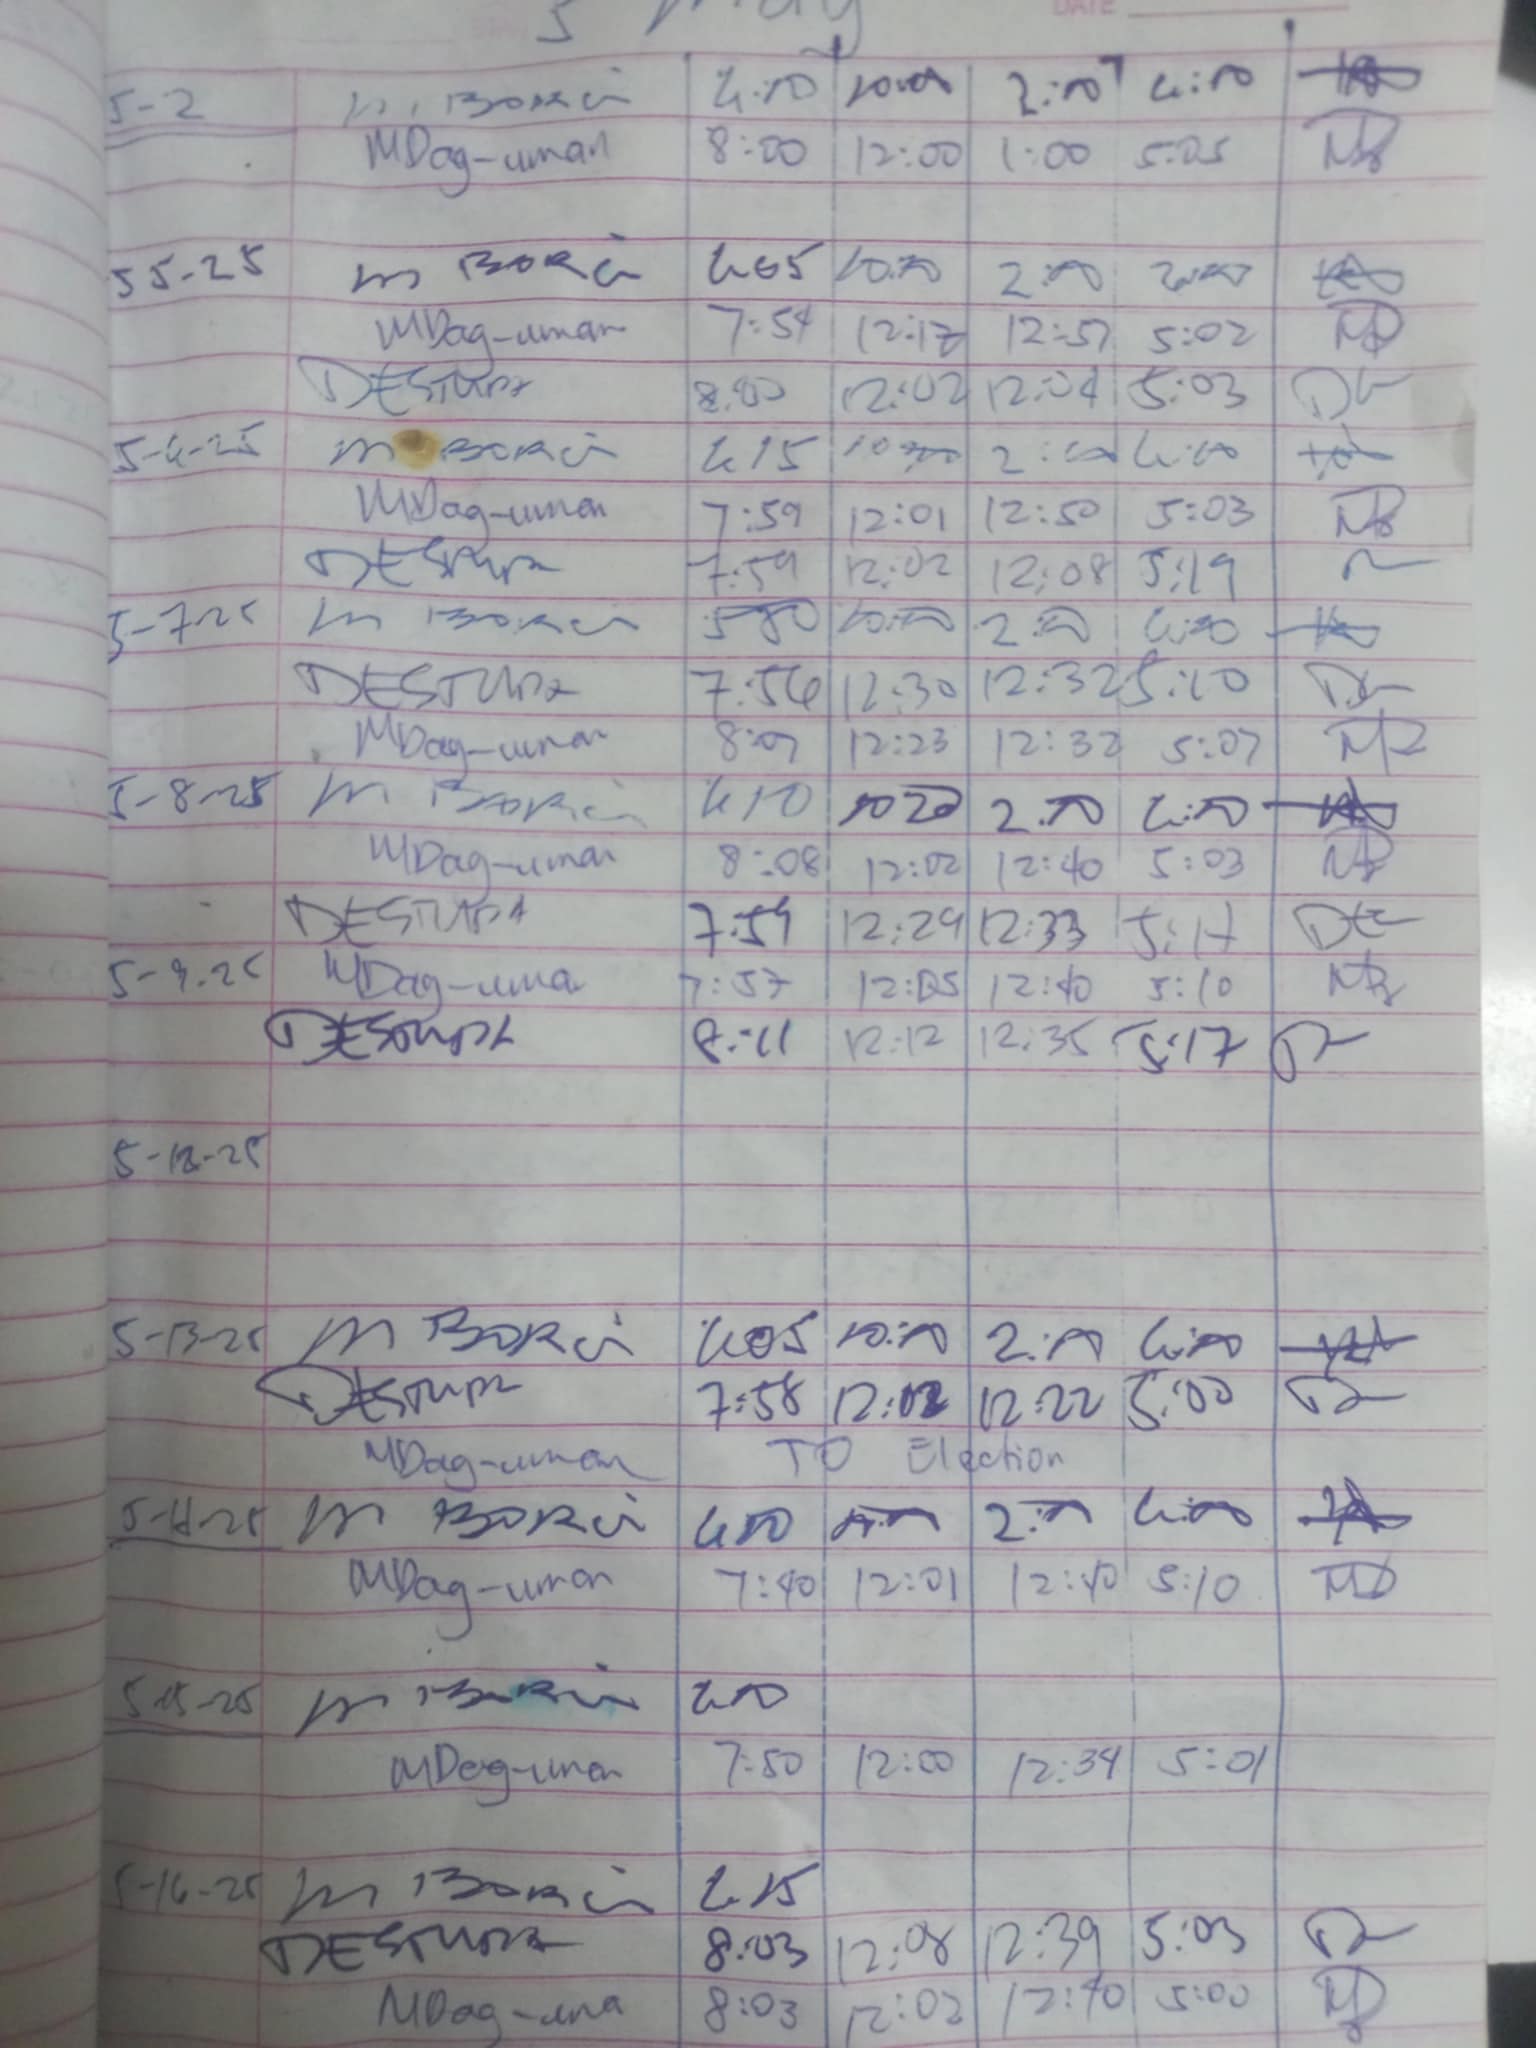 5 May
DATE
5-2 M. Borci 6:00 10:00 2:00 6:00
MDag-uman 8:00 12:00 1:00 5:05
5 5-25 M Borci 6:05 10:00 2:00
MDag-uman 7:54 12:17 12:57 5:02
DESTURA 8:00 12:02 12:04 5:03
5-6-25 M Borci 6:15 10:00 2:00 6:00
MDag-uman 7:59 12:01 12:50 5:03
DESTURA 7:59 12:02 12:08 5:19
5-7-25 M Borci 10:00 2:00 6:00
DESTURA 7:56 12:30 12:32 5:10
MDag-uman 12:23 12:32 5:07
5-8-25 M Borci 6:10 1020 2:00 6:00
MDag-uman 8:08 12:02 12:40 5:03
DESTURA 7:59 12:29 12:33 5:17
5-9-25 MDag-uma 7:57 12:05 12:40 5:10
DESTURA 8:11 12:12 12:35 5:17
5-12-25
5-13-25 M Borci 6:05 10:00 2:00 6:00
DESTURA 7:58 12:02 12:22 5:00
MDag-uman TO Election
5-14-25 M Borci 6:00 2:00 6:00
MDag-uman 7:40 12:01 12:40 5:10
5-15-25 M Borci 6:00
MDag-uman 7:50 12:00 12:34 5:01
5-16-25 M Borci 6:15
DESTURA 8:03 12:08 12:39 5:03
MDag-uma 8:03 12:02 12:40 5:00